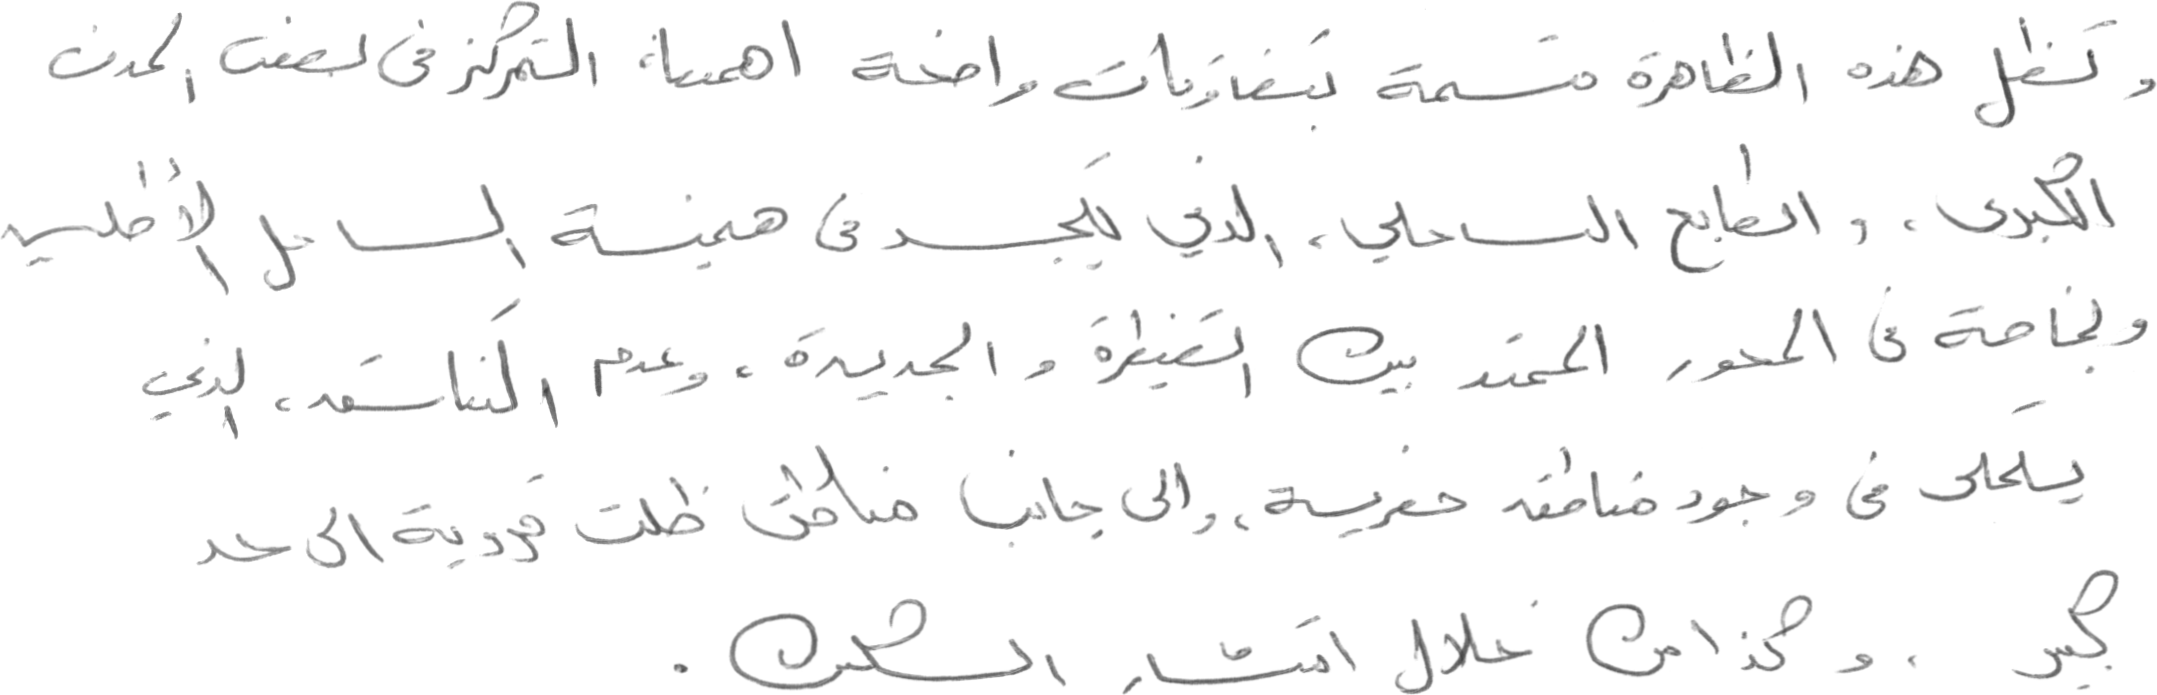 وتظل هذه الظاهرة متسمة بتفاوتات واضحة اهمها، التمركز في بعض المدن
الكبرى، والطابع الساحلي، الذي يتجسد في هيمنة الساحل الأطلسي
وبخاصة في المحور الممتد بين القنيطرة والجديدة، وعدم التناسق، الذي
يتجلى في وجود مناطق حضرية، والى جانبها مناطق ظلت قروية الى حد
كبير، وكذا من خلال انتشار السكن.